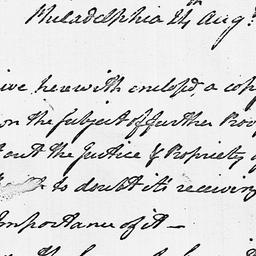 Philadelphia 24th Aug
ive herewith enclos'd a cop
on the Subject of further Prov
out the Justice & Propriety of
to doubt its receiving
Importance of it —